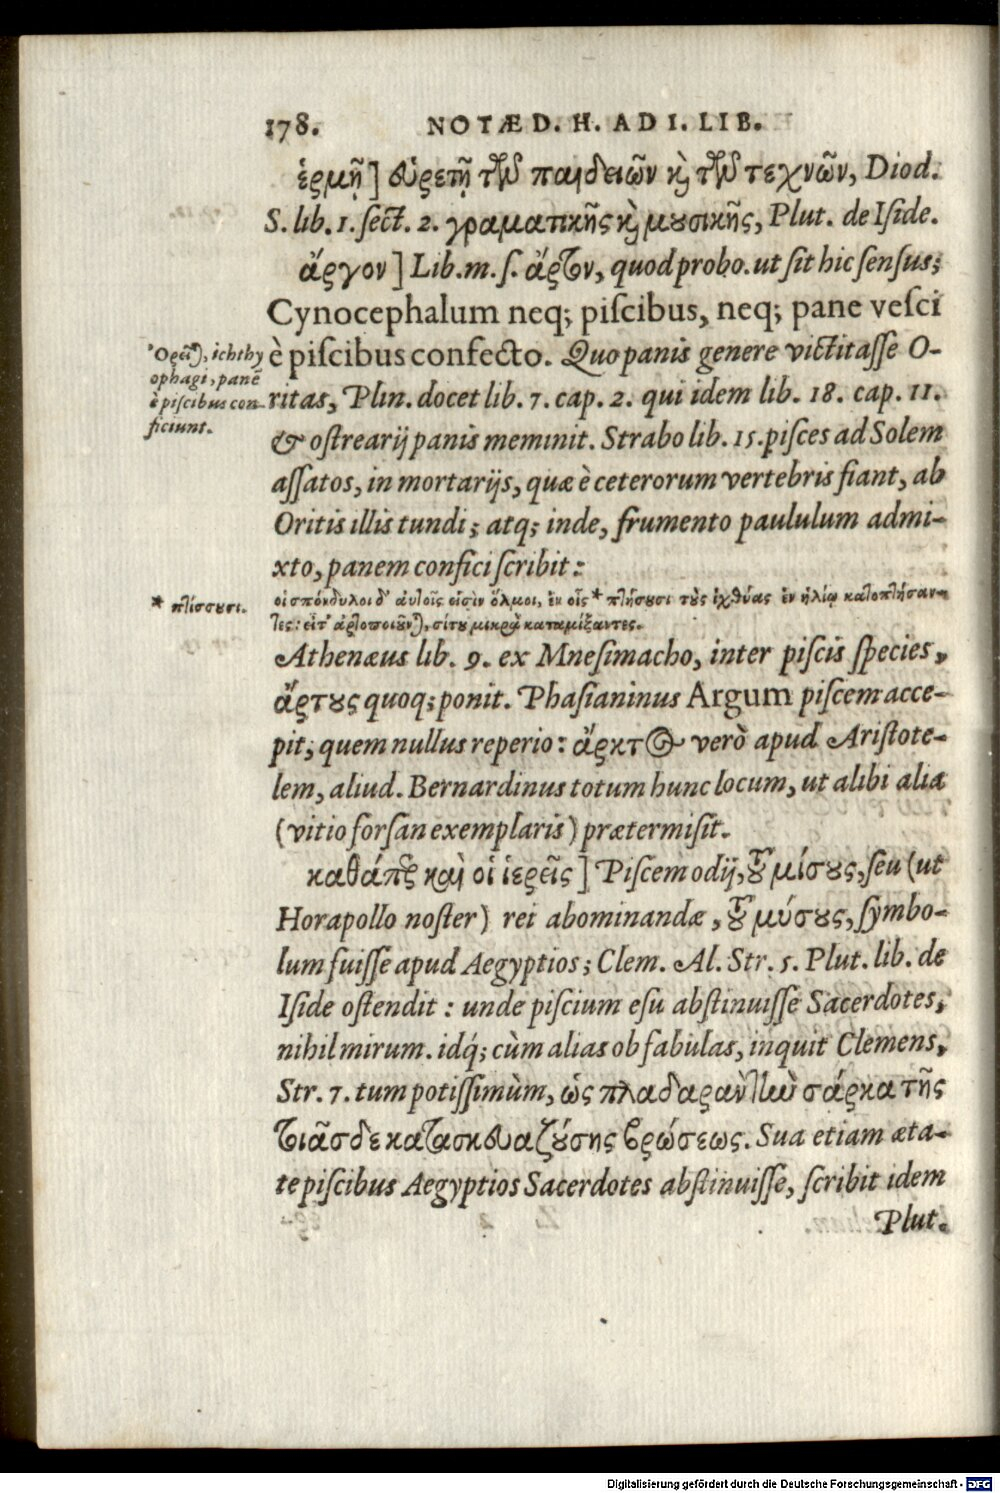 178. NOTÆ D. H. AD I. LIB.
ἑρμῇ] εὑρετῇ τῶν παιδειῶν κὶ τῶν τεχνῶν, Diod.
S. lib. 1. sect. 2. γραματικῆς κὶ μουσικῆς, Plut. de Iside.
ἄργον] Lib. m. s. ἄρτον, quod probo. ut sit hic sensus;
Cynocephalum neq; piscibus, neq; pane vesci
è piscibus confecto. Quo panis genere victitasse O-
ritas, Plin. docet lib. 7. cap. 2. qui idem lib. 18. cap. 11.
& ostrearij panis meminit. Strabo lib. 15. pisces ad Solem
assatos, in mortarijs, quæ è ceterorum vertebris fiant, ab
Oritis illis tundi; atq; inde, frumento paululum admi-
xto, panem confici scribit:
οἱ σπόνδυλοι δ' αὐτοῖς εἰσὶν ὅλμοι, ἐν οἷς * πτήσουσι τοὺς ἰχθύας ἐν ἡλίῳ κατοπτήσαν-
τες: εἶτ' ἀρτοποιοῦνται, σίτου μικρὸν καταμίξαντες.
Athenæus lib. 9. ex Mnesimacho, inter piscis species,
ἄρτους quoq; ponit. Phasianinus Argum piscem acce-
pit, quem nullus reperio: ἄρκτος verò apud Aristote-
lem, aliud. Bernardinus totum hunc locum, ut alibi alia
(vitio forsan exemplaris) prætermisit.
καθάπερ καὶ οἱ ἱερεῖς] Piscem odij, τοῦ μίσους, seu (ut
Horapollo noster) rei abominandæ, τοῦ μύσους, symbo-
lum fuisse apud Aegyptios; Clem. Al. Str. 5. Plut. lib. de
Iside ostendit: unde piscium esu abstinuisse Sacerdotes,
nihil mirum. idq́; cùm alias ob fabulas, inquit Clemens,
Str. 7. tum potissimùm, ὡς πλαδαρὰν τὴν σάρκα τῆς
τοιᾶσδε κατασκευαζούσης βρώσεως. Sua etiam æta-
te piscibus Aegyptios Sacerdotes abstinuisse, scribit idem
Plut.
Ὀρεῖται, ichthy
ophagi, panē
è piscibus con-
ficiunt.
* πτίσσουσι.
Digitalisierung gefördert durch die Deutsche Forschungsgemeinschaft - DFG